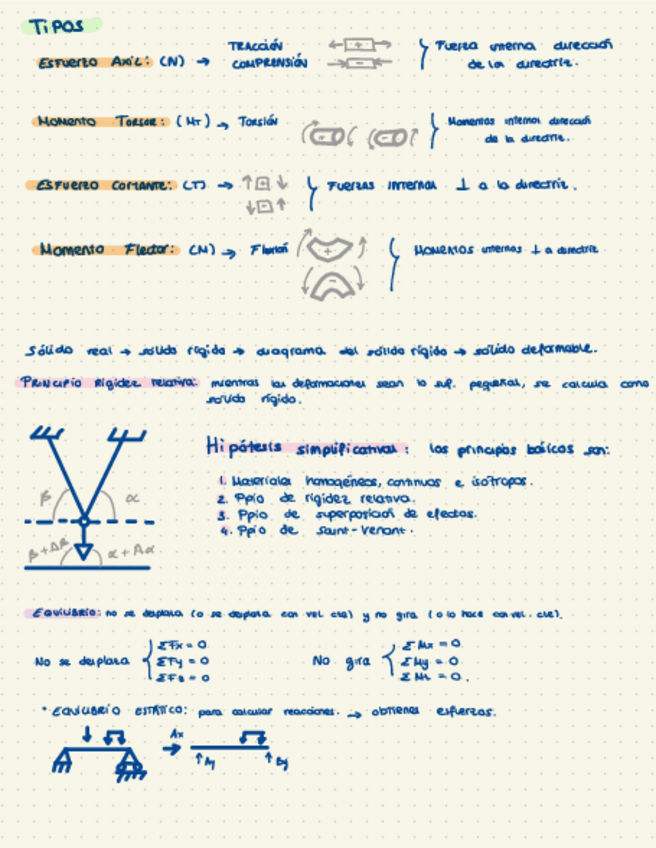 Tipos
TRACCIÓN
ESFUERZO AXIL: (N) → COMPRENSIÓN
+
-
Fuerza interna dirección
de la directriz.
MOMENTO TORSOR: (MT) → TORSIÓN
+
-
Momentos internos dirección
de la directriz.
ESFUERZO CORTANTE: (T) →
+
-
FUERZAS INTERNAS ⊥ a la directriz.
MOMENTO Flector: (M) → Flexión
+
-
MOMENTOS internos ⊥ a directriz
Sólido real → sólido rígido → diagrama del sólido rígido → sólido deformable.
PRINCIPIO Rigidez relativa: mientras las deformaciones sean lo suf. pequeñas, se calcula como
sólido rígido.
Hipótesis simplificativas: los principios básicos son:
1. Materiales homogéneos, continuos e isótropos.
2. Ppio de rigidez relativa.
3. Ppio de superposición de efectos.
4. Ppio de saint-Venant.
β α
β+Δβ α+Δα
EQUILIBRIO: no se desplaza (o se desplaza con vel cte) y no gira (o lo hace con vel. cte).
No se desplaza
ΣFx = 0
ΣFy = 0
ΣFz = 0
No gira
ΣMx = 0
ΣMy = 0
ΣMz = 0.
• EQUILIBRIO ESTÁTICO: para calcular reacciones. → obtienes esfuerzos.
Ax
Ay By